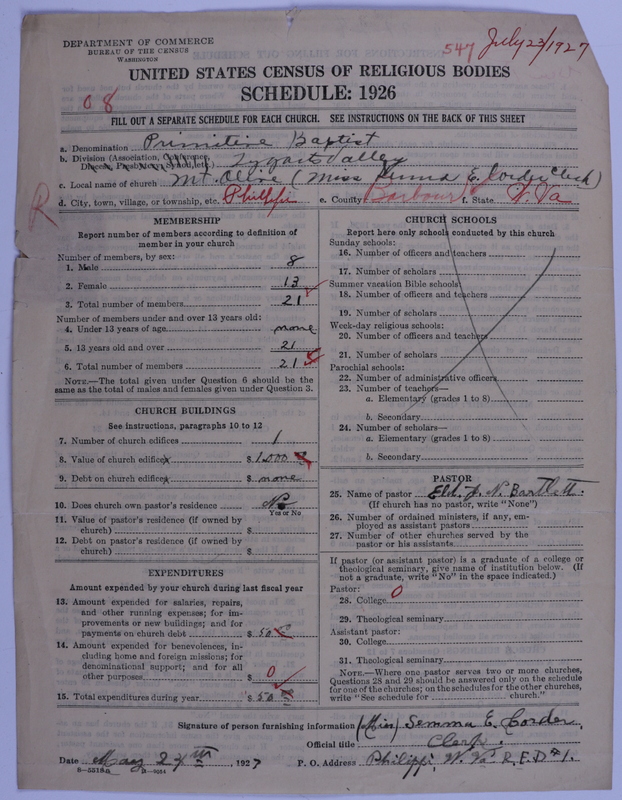 DEPARTMENT OF COMMERCE
BUREAU OF THE CENSUS
WASHINGTON
547 July 23/1927
UNITED STATES CENSUS OF RELIGIOUS BODIES
SCHEDULE: 1926
08
FILL OUT A SEPARATE SCHEDULE FOR EACH CHURCH. SEE INSTRUCTIONS ON THE BACK OF THIS SHEET
a. Denomination Primitive Baptist
b. Division (Association, Conference, Diocese, Presbytery, Synod, etc.) Tygarts Valley
c. Local name of church Mt. Olive (Miss E. Corder Clerk)
R
d. City, town, village, or township, etc. Philippi e. County Barbour f. State W. Va
MEMBERSHIP
Report number of members according to definition of
member in your church
Number of members, by sex:
1. Male 8
2. Female 13
3. Total number of members 21
Number of members under and over 13 years old:
4. Under 13 years of age none
5. 13 years old and over 21
6. Total number of members 21
NOTE.—The total given under Question 6 should be
same as the total of males and females given under Question 3.
CHURCH BUILDINGS
See instructions, paragraphs 10 to 12
7. Number of church edifices 1
8. Value of church edifices $1,000
9. Debt on church edifices $ none
10. Does church own pastor's residence No
Yes or No
11. Value of pastor's residence (if owned by
church) $
12. Debt on pastor's residence (if owned by
church) $
EXPENDITURES
Amount expended by your church during last fiscal year
13. Amount expended for salaries, repairs,
and other running expenses; for im-
provements or new buildings; and for
payments on church debt $ 50
14. Amount expended for benevolences, in-
cluding home and foreign missions; for
denominational support; and for all
other purposes $ 0
15. Total expenditures during year $ 50
CHURCH SCHOOLS
Report here only schools conducted by this church
Sunday schools:
16. Number of officers and teachers
17. Number of scholars
Summer vacation Bible schools:
18. Number of officers and teachers
19. Number of scholars
Week-day religious schools:
20. Number of officers and teachers
21. Number of scholars
Parochial schools:
22. Number of administrative officers
23. Number of teachers—
a. Elementary (grades 1 to 8)
b. Secondary
24. Number of scholars—
a. Elementary (grades 1 to 8)
b. Secondary
PASTOR
25. Name of pastor Eld. J. N. Bartlett.
(If church has no pastor, write "None")
26. Number of ordained ministers, if any, em-
ployed as assistant pastors
27. Number of other churches served by the
pastor or his assistants
If pastor (or assistant pastor) is a graduate of a college or
theological seminary, give name of institution below. (If
not a graduate, write "No" in the space indicated.)
Pastor:
28. College 0
29. Theological seminary
Assistant pastor:
30. College
31. Theological seminary
NOTE.—Where one pastor serves two or more churches,
Questions 28 and 29 should be answered only on the schedule
for one of the churches; on the schedules for the other churches,
write "See schedule for church."
Signature of person furnishing information (Miss) Semma E. Corder.
Official title Clerk.
Date May 24th, 1927 P. O. Address Philippi, W. Va R.F.D #1.